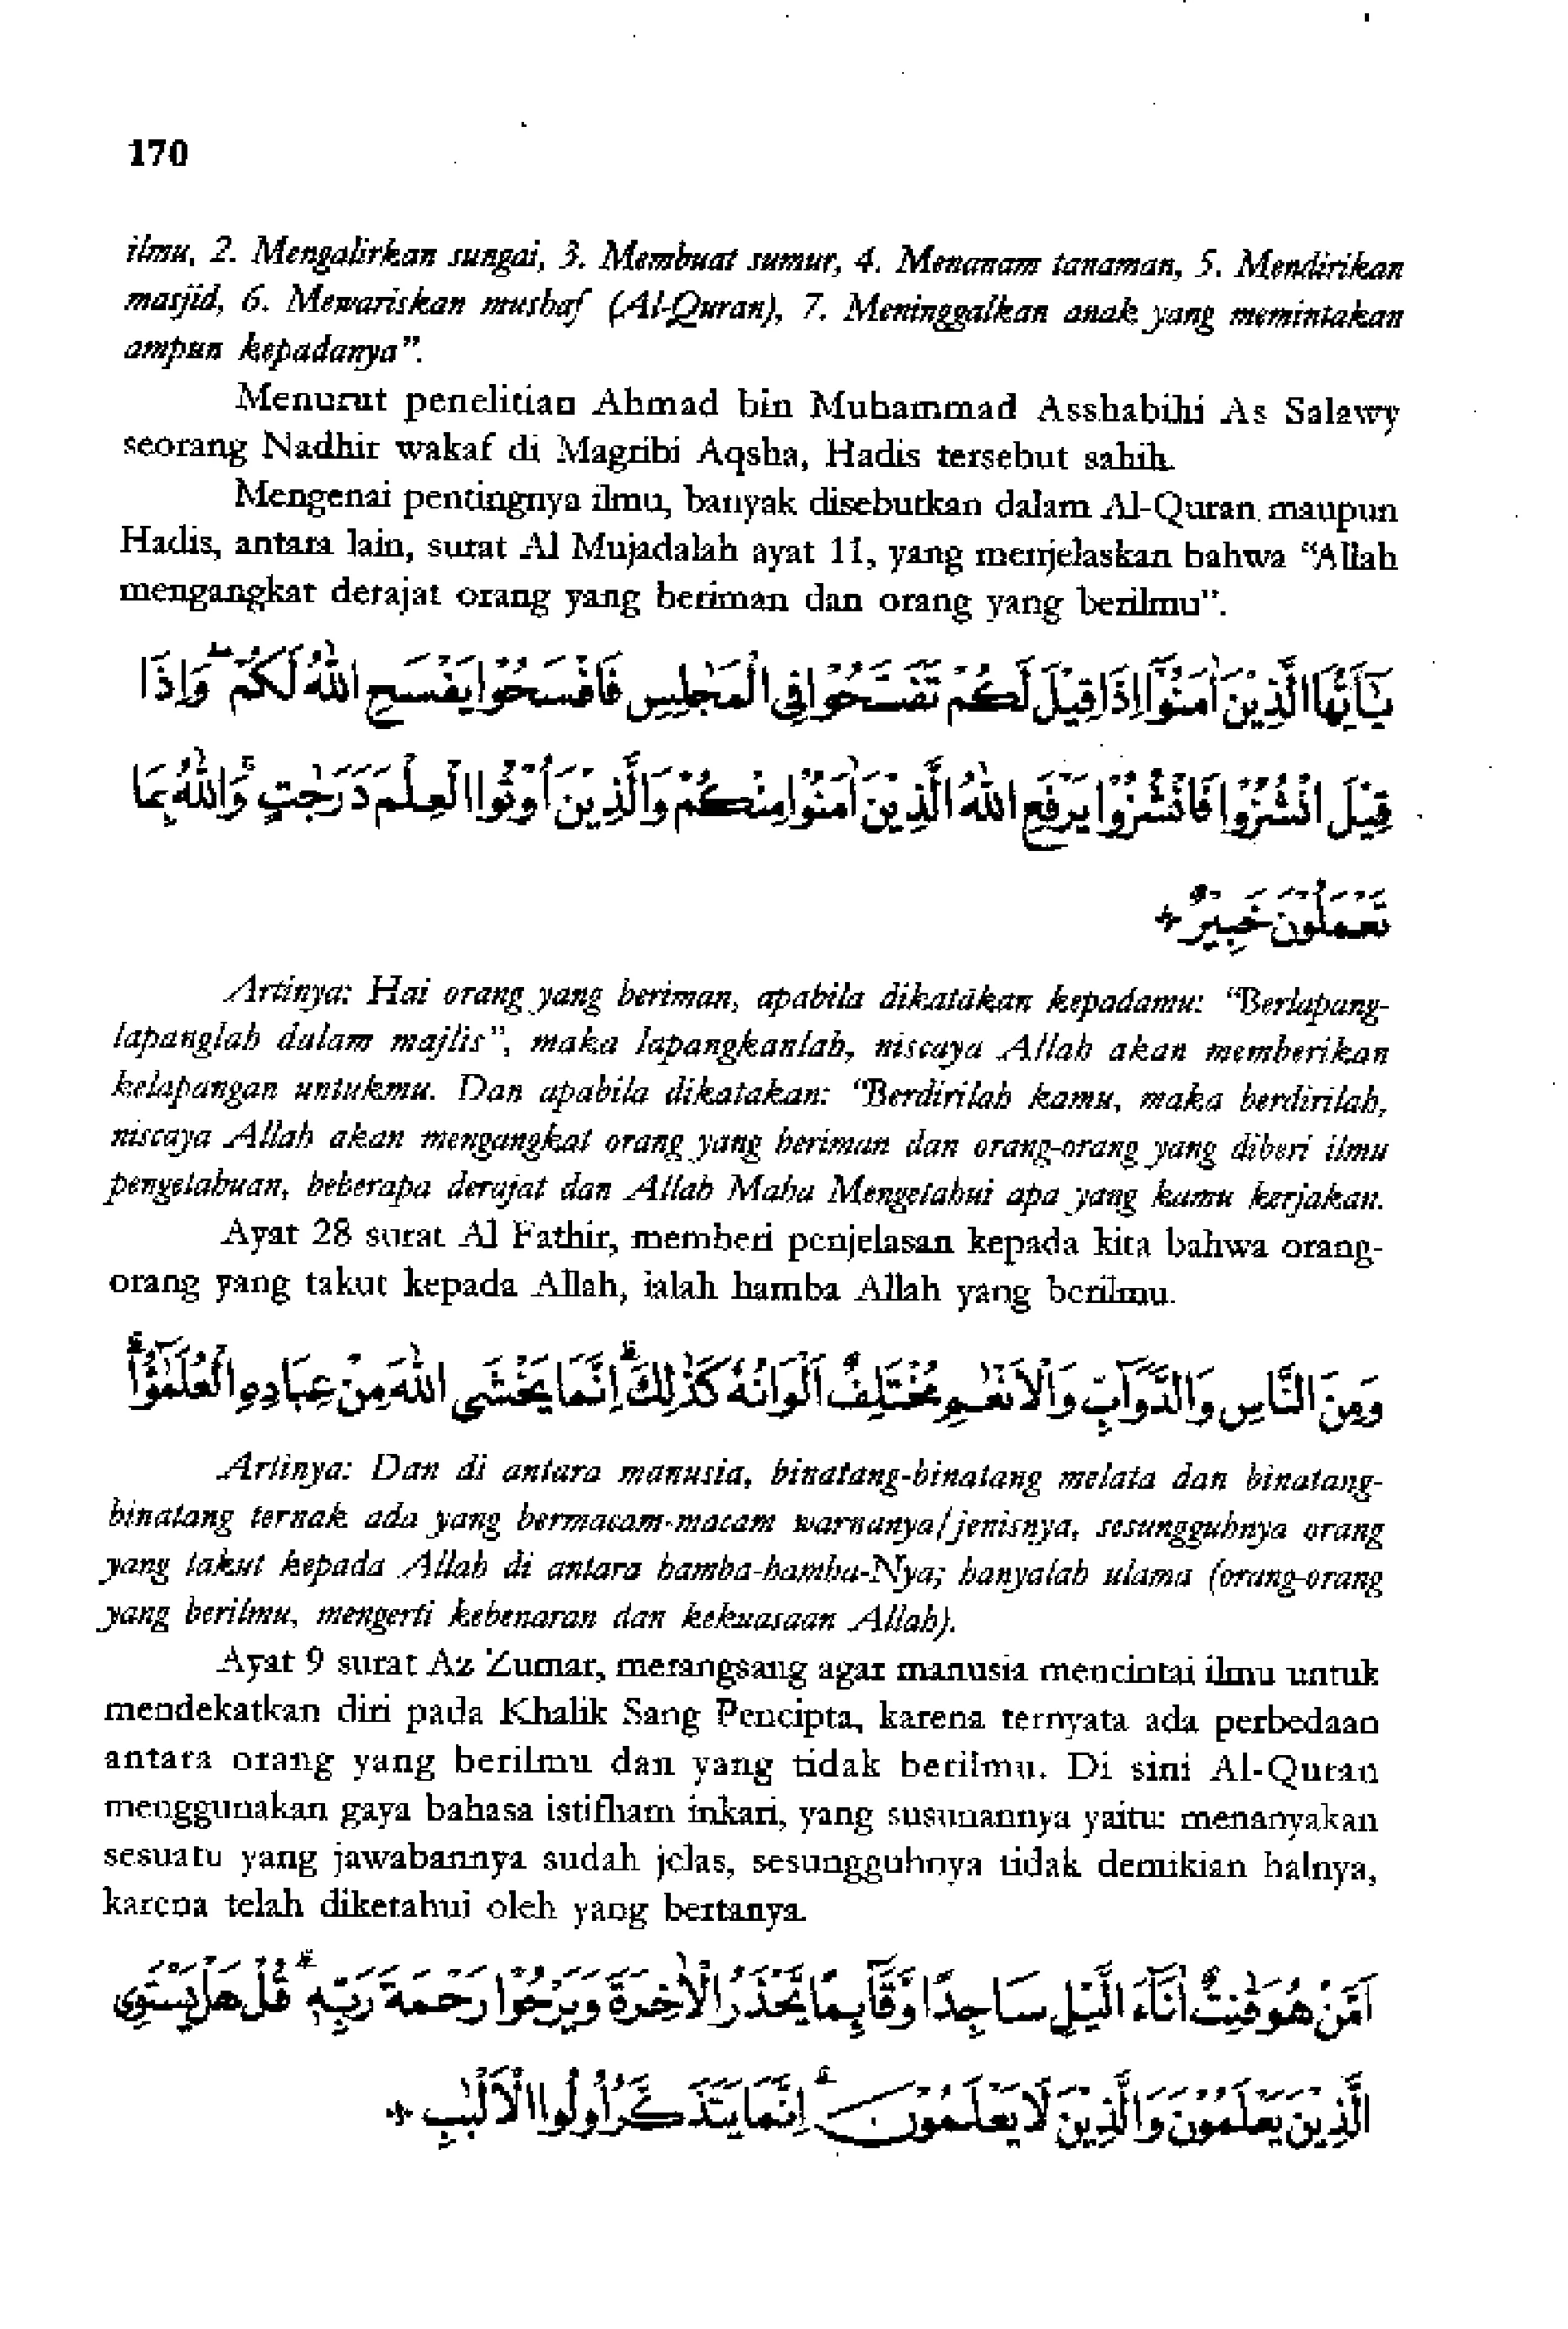 170
ilmu, 2. Mengalirkan sungai, 3. Membuat sumur, 4. Menanam tanaman, 5. Mendirikan
masjid, 6. Mewariskan mushaf (Al-Quran), 7. Meninggalkan anak yang memintakan
ampun kepadanya”.
Menurut penelitian Ahmad bin Muhammad Asshabihi As Salawy
seorang Nadhir wakaf di Magribi Aqsha, Hadis tersebut sahih.
Mengenai pentingnya ilmu, banyak disebutkan dalam Al-Quran maupun
Hadis, antara lain, surat Al Mujadalah ayat 11, yang menjelaskan bahwa “Allah
mengangkat derajat orang yang beriman dan orang yang berilmu”.
يٰٓاَيُّهَا الَّذِيْنَ اٰمَنُوْٓا اِذَا قِيْلَ لَكُمْ تَفَسَّحُوْا فِى الْمَجٰلِسِ فَافْسَحُوْا يَفْسَحِ اللّٰهُ لَكُمْ ۖ وَاِذَا
قِيْلَ انْشُزُوْا فَانْشُزُوْا يَرْفَعِ اللّٰهُ الَّذِيْنَ اٰمَنُوْا مِنْكُمْ وَالَّذِيْنَ اُوْتُوا الْعِلْمَ دَرَجٰتٍ ۗ وَاللّٰهُ بِمَا
تَعْمَلُوْنَ خَبِيْرٌ +
Artinya: Hai orang yang beriman, apabila dikatakan kepadamu: “Berlapang-
lapanglah dalam majlis”, maka lapangkanlah, niscaya Allah akan memberikan
kelapangan untukmu. Dan apabila dikatakan: “Berdirilah kamu, maka berdirilah,
niscaya Allah akan mengangkat orang yang beriman dan orang-orang yang diberi ilmu
pengetahuan, beberapa derajat dan Allah Maha Mengetahui apa yang kamu kerjakan.
Ayat 28 surat Al Fathir, memberi penjelasan kepada kita bahwa orang-
orang yang takut kepada Allah, ialah hamba Allah yang berilmu.
وَمِنَ النَّاسِ وَالدَّوَآبِّ وَالْاَنْعٰمِ مُخْتَلِفٌ اَلْوَانُهٗ كَذٰلِكَ ۗ اِنَّمَا يَخْشَى اللّٰهَ مِنْ عِبَادِهِ الْعُلَمٰٓؤُا ۗ
Artinya: Dan di antara manusia, binatang-binatang melata dan binatang-
binatang ternak ada yang bermacam-macam warnanya/jenisnya, sesungguhnya orang
yang takut kepada Allah di antara hamba-hamba-Nya; hanyalah ulama (orang-orang
yang berilmu, mengerti kebenaran dan kekuasaan Allah).
Ayat 9 surat Az Zumar, merangsang agar manusia mencintai ilmu untuk
mendekatkan diri pada Khalik Sang Pencipta, karena ternyata ada perbedaan
antara orang yang berilmu dan yang tidak berilmu. Di sini Al-Quran
menggunakan gaya bahasa istifham inkari, yang susunannya yaitu: menanyakan
sesuatu yang jawabannya sudah jelas, sesungguhnya tidak demikian halnya,
karena telah diketahui oleh yang bertanya.
اَمَّنْ هُوَ قٰنِتٌ اٰنَآءَ الَّيْلِ سَاجِدًا وَّقَآئِمًا يَّحْذَرُ الْاٰخِرَةَ وَيَرْجُوْا رَحْمَةَ رَبِّهٖ ۗ قُلْ هَلْ يَسْتَوِى
الَّذِيْنَ يَعْلَمُوْنَ وَالَّذِيْنَ لَا يَعْلَمُوْنَ ۗ اِنَّمَا يَتَذَكَّرُ اُولُوا الْاَلْبٰبِ +